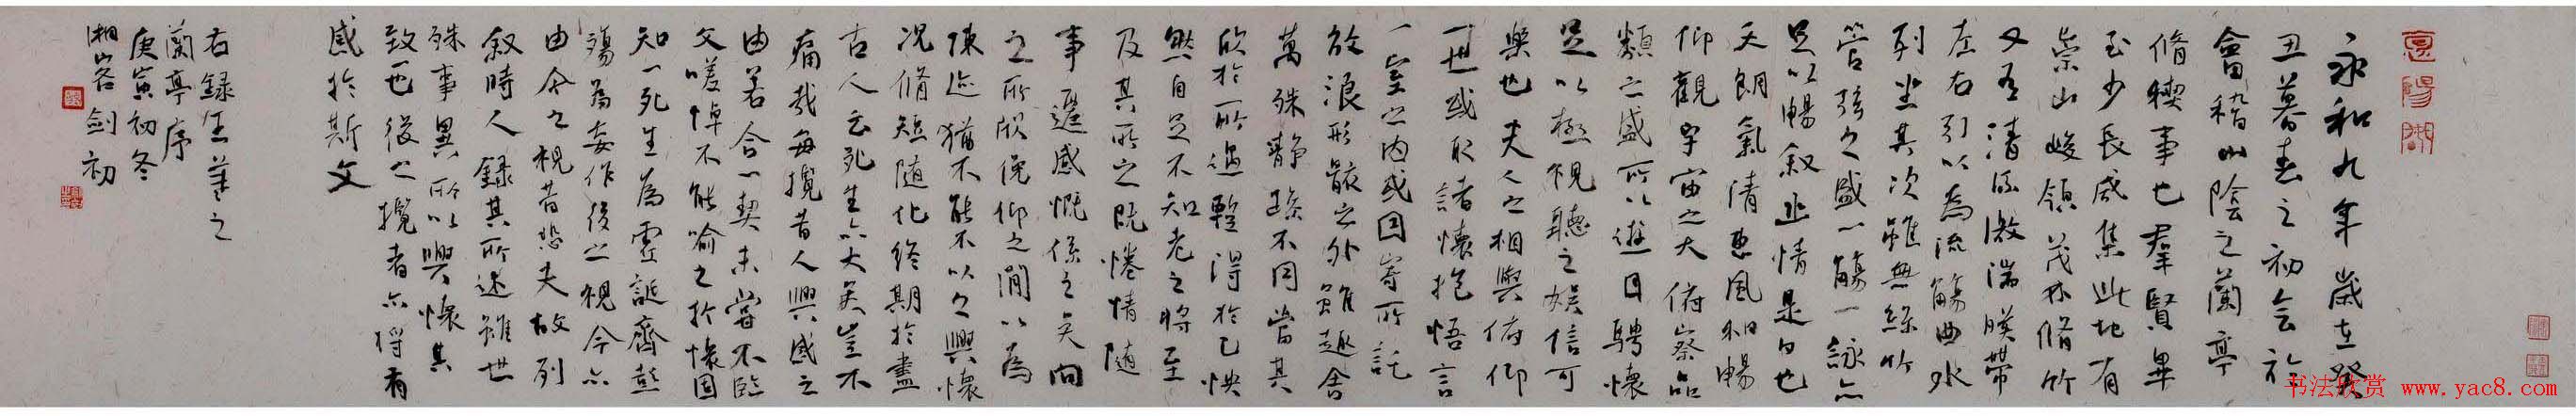 永和九年歲在癸
丑暮春之初会於
會稽山陰之蘭亭
脩稧事也羣賢畢
至少長咸集此地有
崇山峻領茂林脩竹
又有清流激湍暎帶
左右引以為流觴曲水
列坐其次雖無絲竹
管弦之盛一觴一詠亦
足以暢叙幽情是日也
天朗氣清惠風和暢
仰觀宇宙之大俯察品
類之盛所以遊目騁懷
足以極視聽之娱信可
樂也夫人之相與俯仰
一世或取諸懷抱悟言
一室之内或因寄所託
放浪形骸之外雖趣舍
萬殊静躁不同當其
欣於所遇暫得於己怏
然自足不知老之將至
及其所之既惓情随
事遷感慨係之矣向
之所欣俛仰之間以為
陳迹猶不能不以之興懷
况脩短随化終期於盡
古人云死生亦大矣豈不
痛哉每攬昔人興感之
由若合一契未嘗不臨
文嗟悼不能喻之於懷固
知一死生為虛誕齊彭
殤為妄作後之視今亦
由今之視昔悲夫故列
叙時人録其所述雖世
殊事異所以興懷其
致一也後之攬者亦将有
感於斯文
右録王羲之
蘭亭序
庚寅初冬
湘 剑初
书法欣赏 www.yac8.com